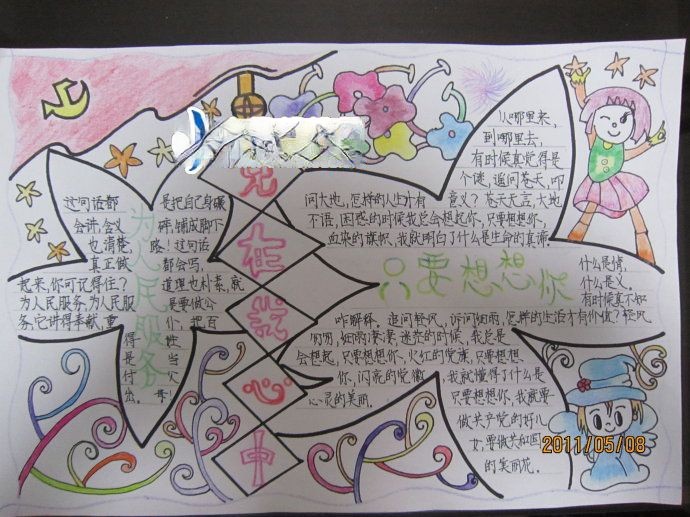 党在我心中
为人民服务
这句话都
会讲,含义
也清楚,
真正做
起来,你可记得住?
为人民服务,为人民服
务,它讲得奉献,重
得
是
付
出。
是把自己身碾
碎,铺成脚下
路!这句话
都会写,
道理也朴素,就
是要做公
仆,把百
性
当
父
母!
只要想想你
从哪里来,
到哪里去,
有时候真觉得是
个谜,追问苍天,叩
问大地,怎样的人生才有意义?苍天无言,大地
不语,困惑的时候我总会想起你,只要想想你,
血染的旗帜,我就明白了什么是生命的真谛。
什么是得,
什么是义。
有时候真不知
咋解释。追问轻风,诉问细雨,怎样的生活才有价值?轻风
呐呐,细雨凄凄,迷茫的时候,我总是
会想起,只要想想你,火红的党旗,只要想想
你,闪亮的党徽,我就懂得了什么是
心灵的美丽。只要想想你,我就要
做共产党的好儿
女,要做共和国
的美丽花。
2011/05/08